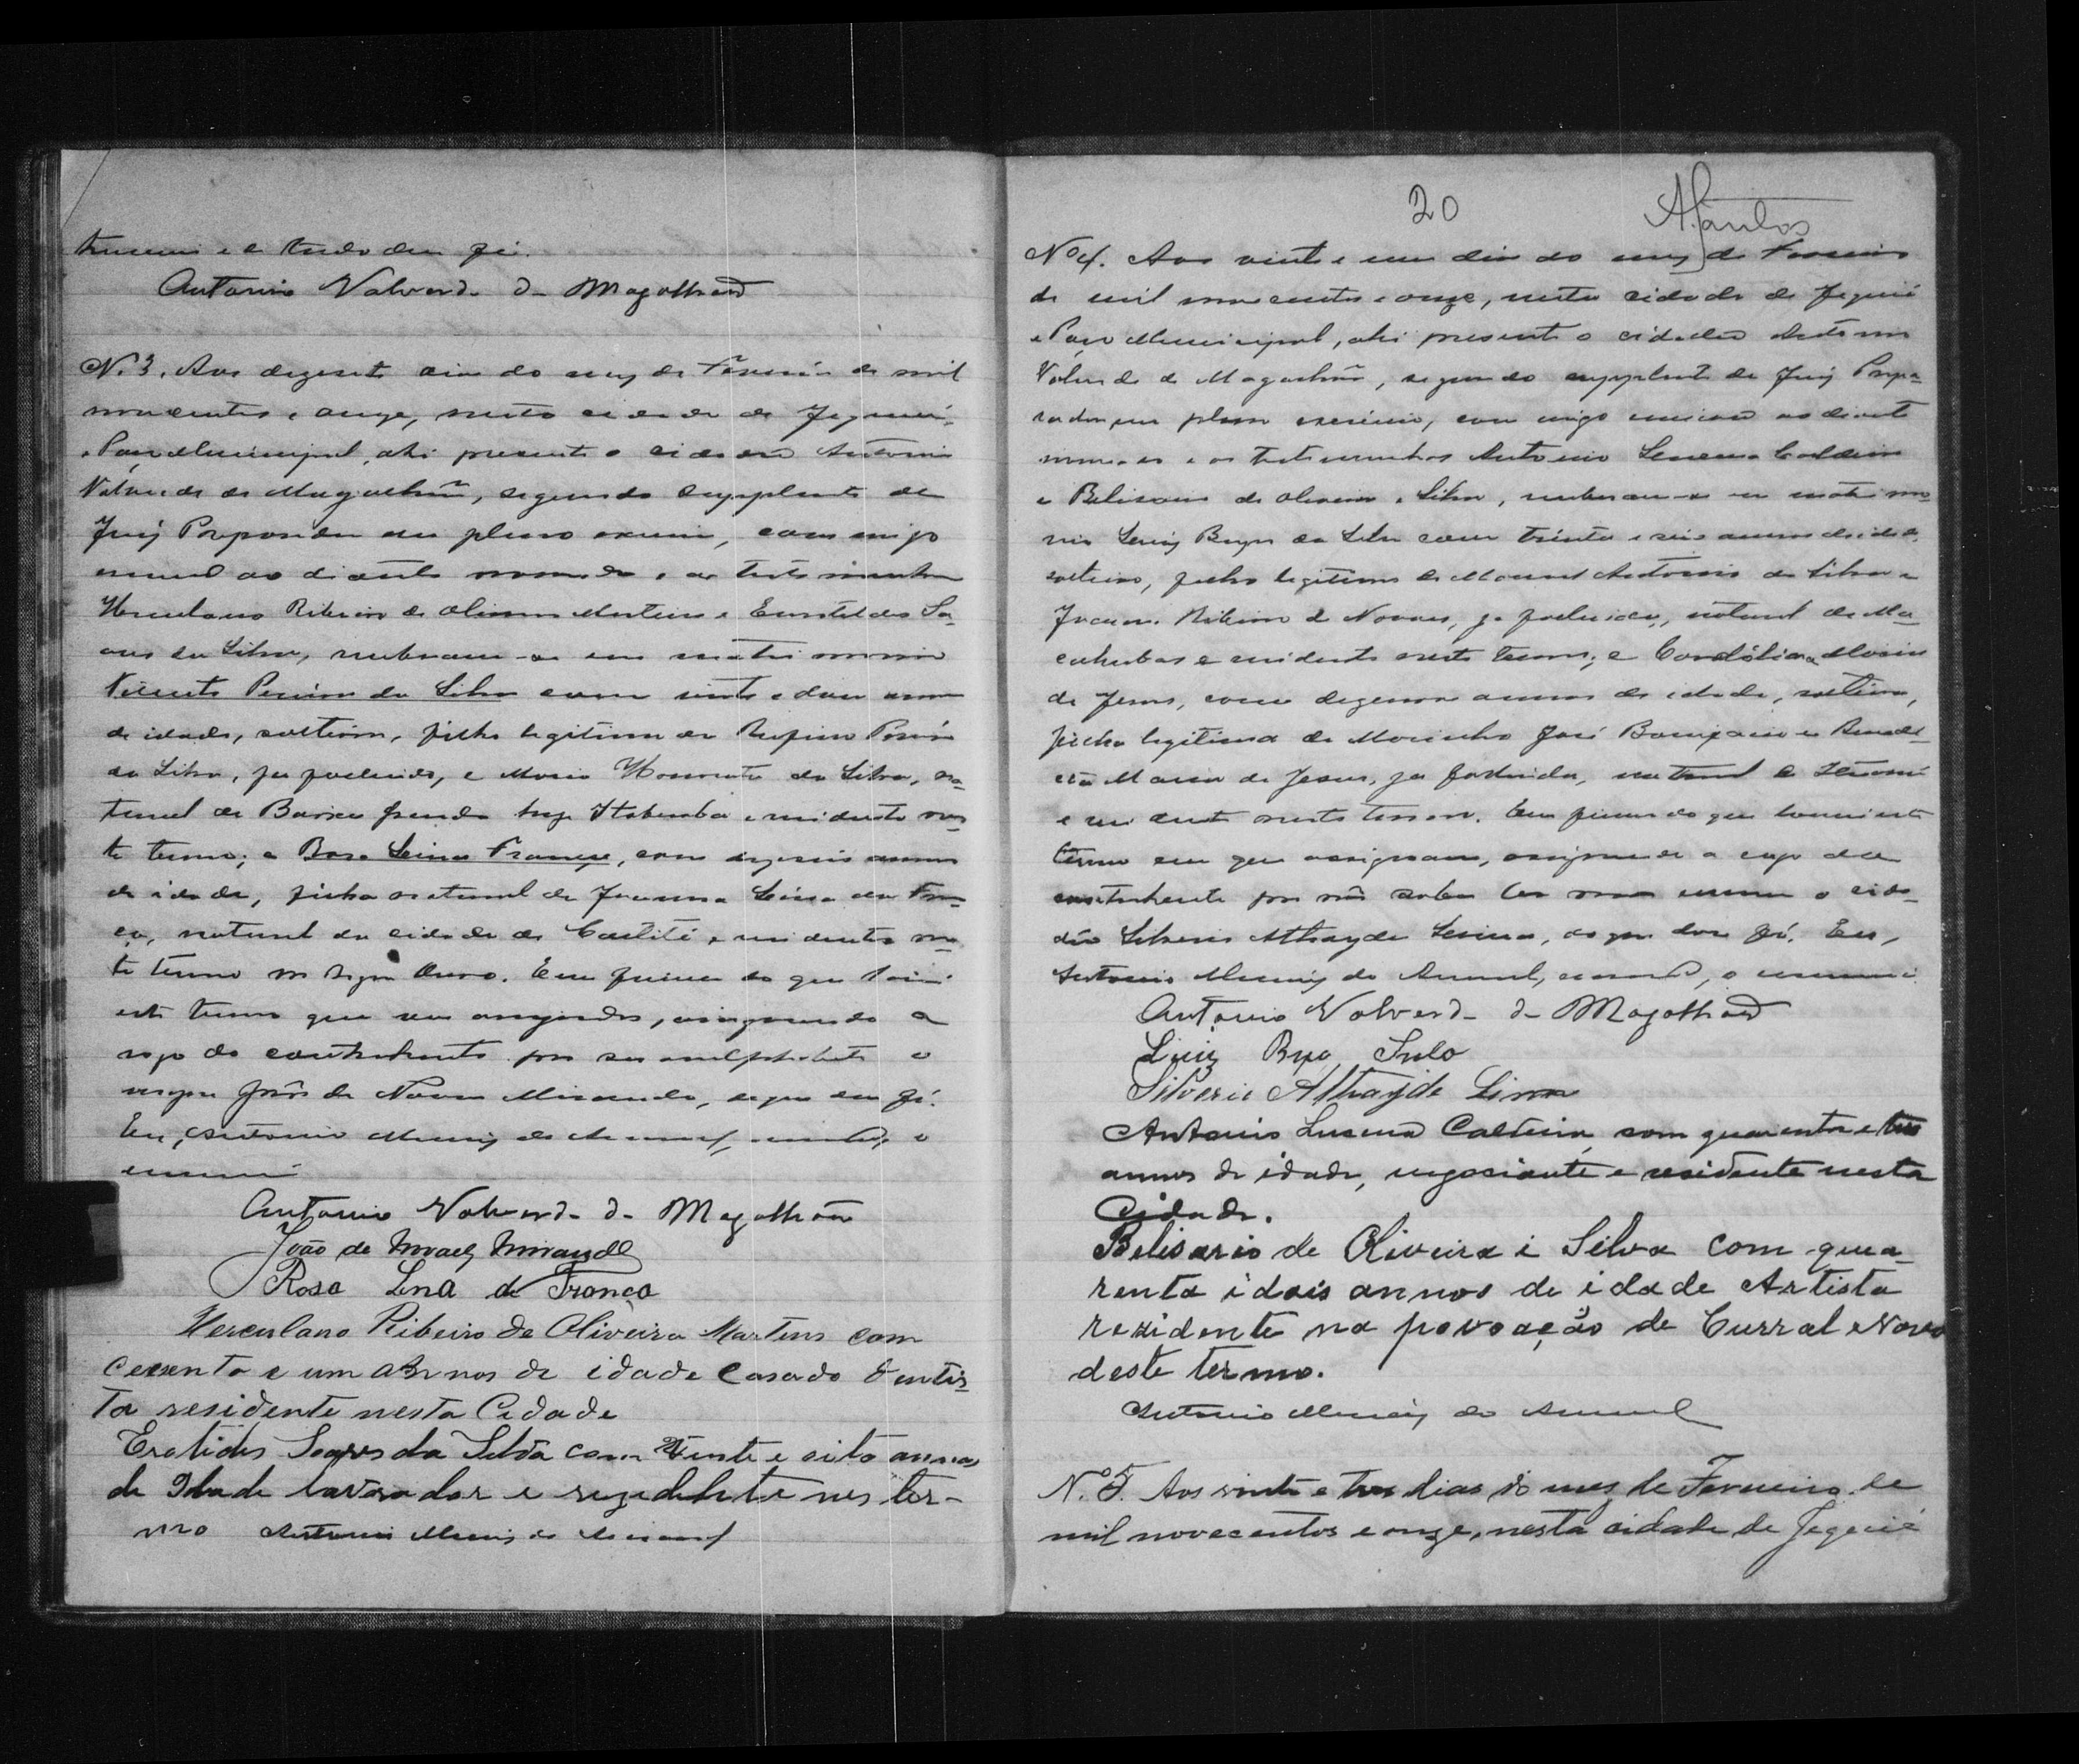 e tudo dou fé.
Antonio Valverde de Magalhães
N. 3. Aos dezesete dias do mez de Fevereiro de mil
novecentos e onze, nesta cidade de Jequié,
e Paço Municipal, ahi presente o cidadão Antonio
Valverde de Magalhães, segundo supplente de
Juiz Preparador em pleno exercicio, commigo
escrivão ao diante nomeado e as testemunhas
Herculano Ribeiro de Oliveira Martins e Soa-
res da Silva, receberam-se em matrimonio
Vicente Pereira da Silva com vinte e dois annos
de idade, solteiro, filho legitimo de Rufino Pereira
da Silva, ja fallecido, e Maria Honorata da Silva, na-
tural de hoje Itaberaba e residente nes-
te termo; e Rosa Lina França, com dezeseis annos
de idade, filha natural de Joanna Lina da Fran-
ça, natural da cidade de Caetité e residente nes-
te termo no Ouro. Em firmeza do que lavrei
este termo que vai assignado, assignando a
rogo do contrahente por ser analphabeto o
João de Novaes Miranda, do que dou fé.
Eu, Antonio Muniz do Amaral, escrivão, o
escrevi
Antonio Valverde de Magalhães
João de Novaes Miranda
Rosa Lina de França
Herculano Ribeiro de Oliveira Martins com
cecenta e um annos de idade casado dentis-
ta residente nesta Cidade
Eratides Soares da Silva com Vinte e oito annos
de Idade lavrador e rezedente nes ter-
mo Antonio Muniz do Amaral
20 A. Santos
No 4. Aos vinte e um dia do mez de Fevereiro
de mil novecentos e onze, nesta cidade de Jequié
e Paço Municipal, ahi presente o cidadão Antonio
Valverde de Magalhães, segundo supplente de Juiz Prepa-
rador em pleno exercicio, commigo escrivão ao diante
nomeado e as testemunhas Antonio Lucena Caldeira
e Belisario de Oliveira e Silva, receberam-se em matrimo-
nio Luiz Bispo da Silva com trinta e seis annos de idade,
solteiro, filho legitimo de Manoel Antonio da Silva e
Joanna Ribeiro de Novaes, ja fallecida, natural de Ma-
cahubas e residente neste termo; e Maria
de Jesus, com dezenove annos de idade, solteira,
filha legitima de Marinho José Bonifacio e Bened-
cta Maria de Jesus, ja fallecida, natural de
e residente neste termo. Em firmeza do que lavrei este
termo em que assignam, assignando a rogo da
contrahente por não saber ler nem escrever o cida-
dão Silverio Athayde Lima, do que dou fé. Eu,
Antonio Muniz do Amaral, escrivão, o escrevi.
Antonio Valverde de Magalhães
Luiz Bispo Silva
Silverio Athayde Lima
Antonio Lucena Caldeira, com quarenta e tres
annos de idade, negociante e residente nesta
Cidade.
Belisario de Oliveira i Silva com qua-
renta i dois annos de idade Artista
rezidente na povoação de Curral Novo
deste termo.
Antonio Muniz do Amaral
N. 5. Aos vinte e tres dias do mes de Fevereiro de
mil novecentos e onze, nesta cidade de Jequié